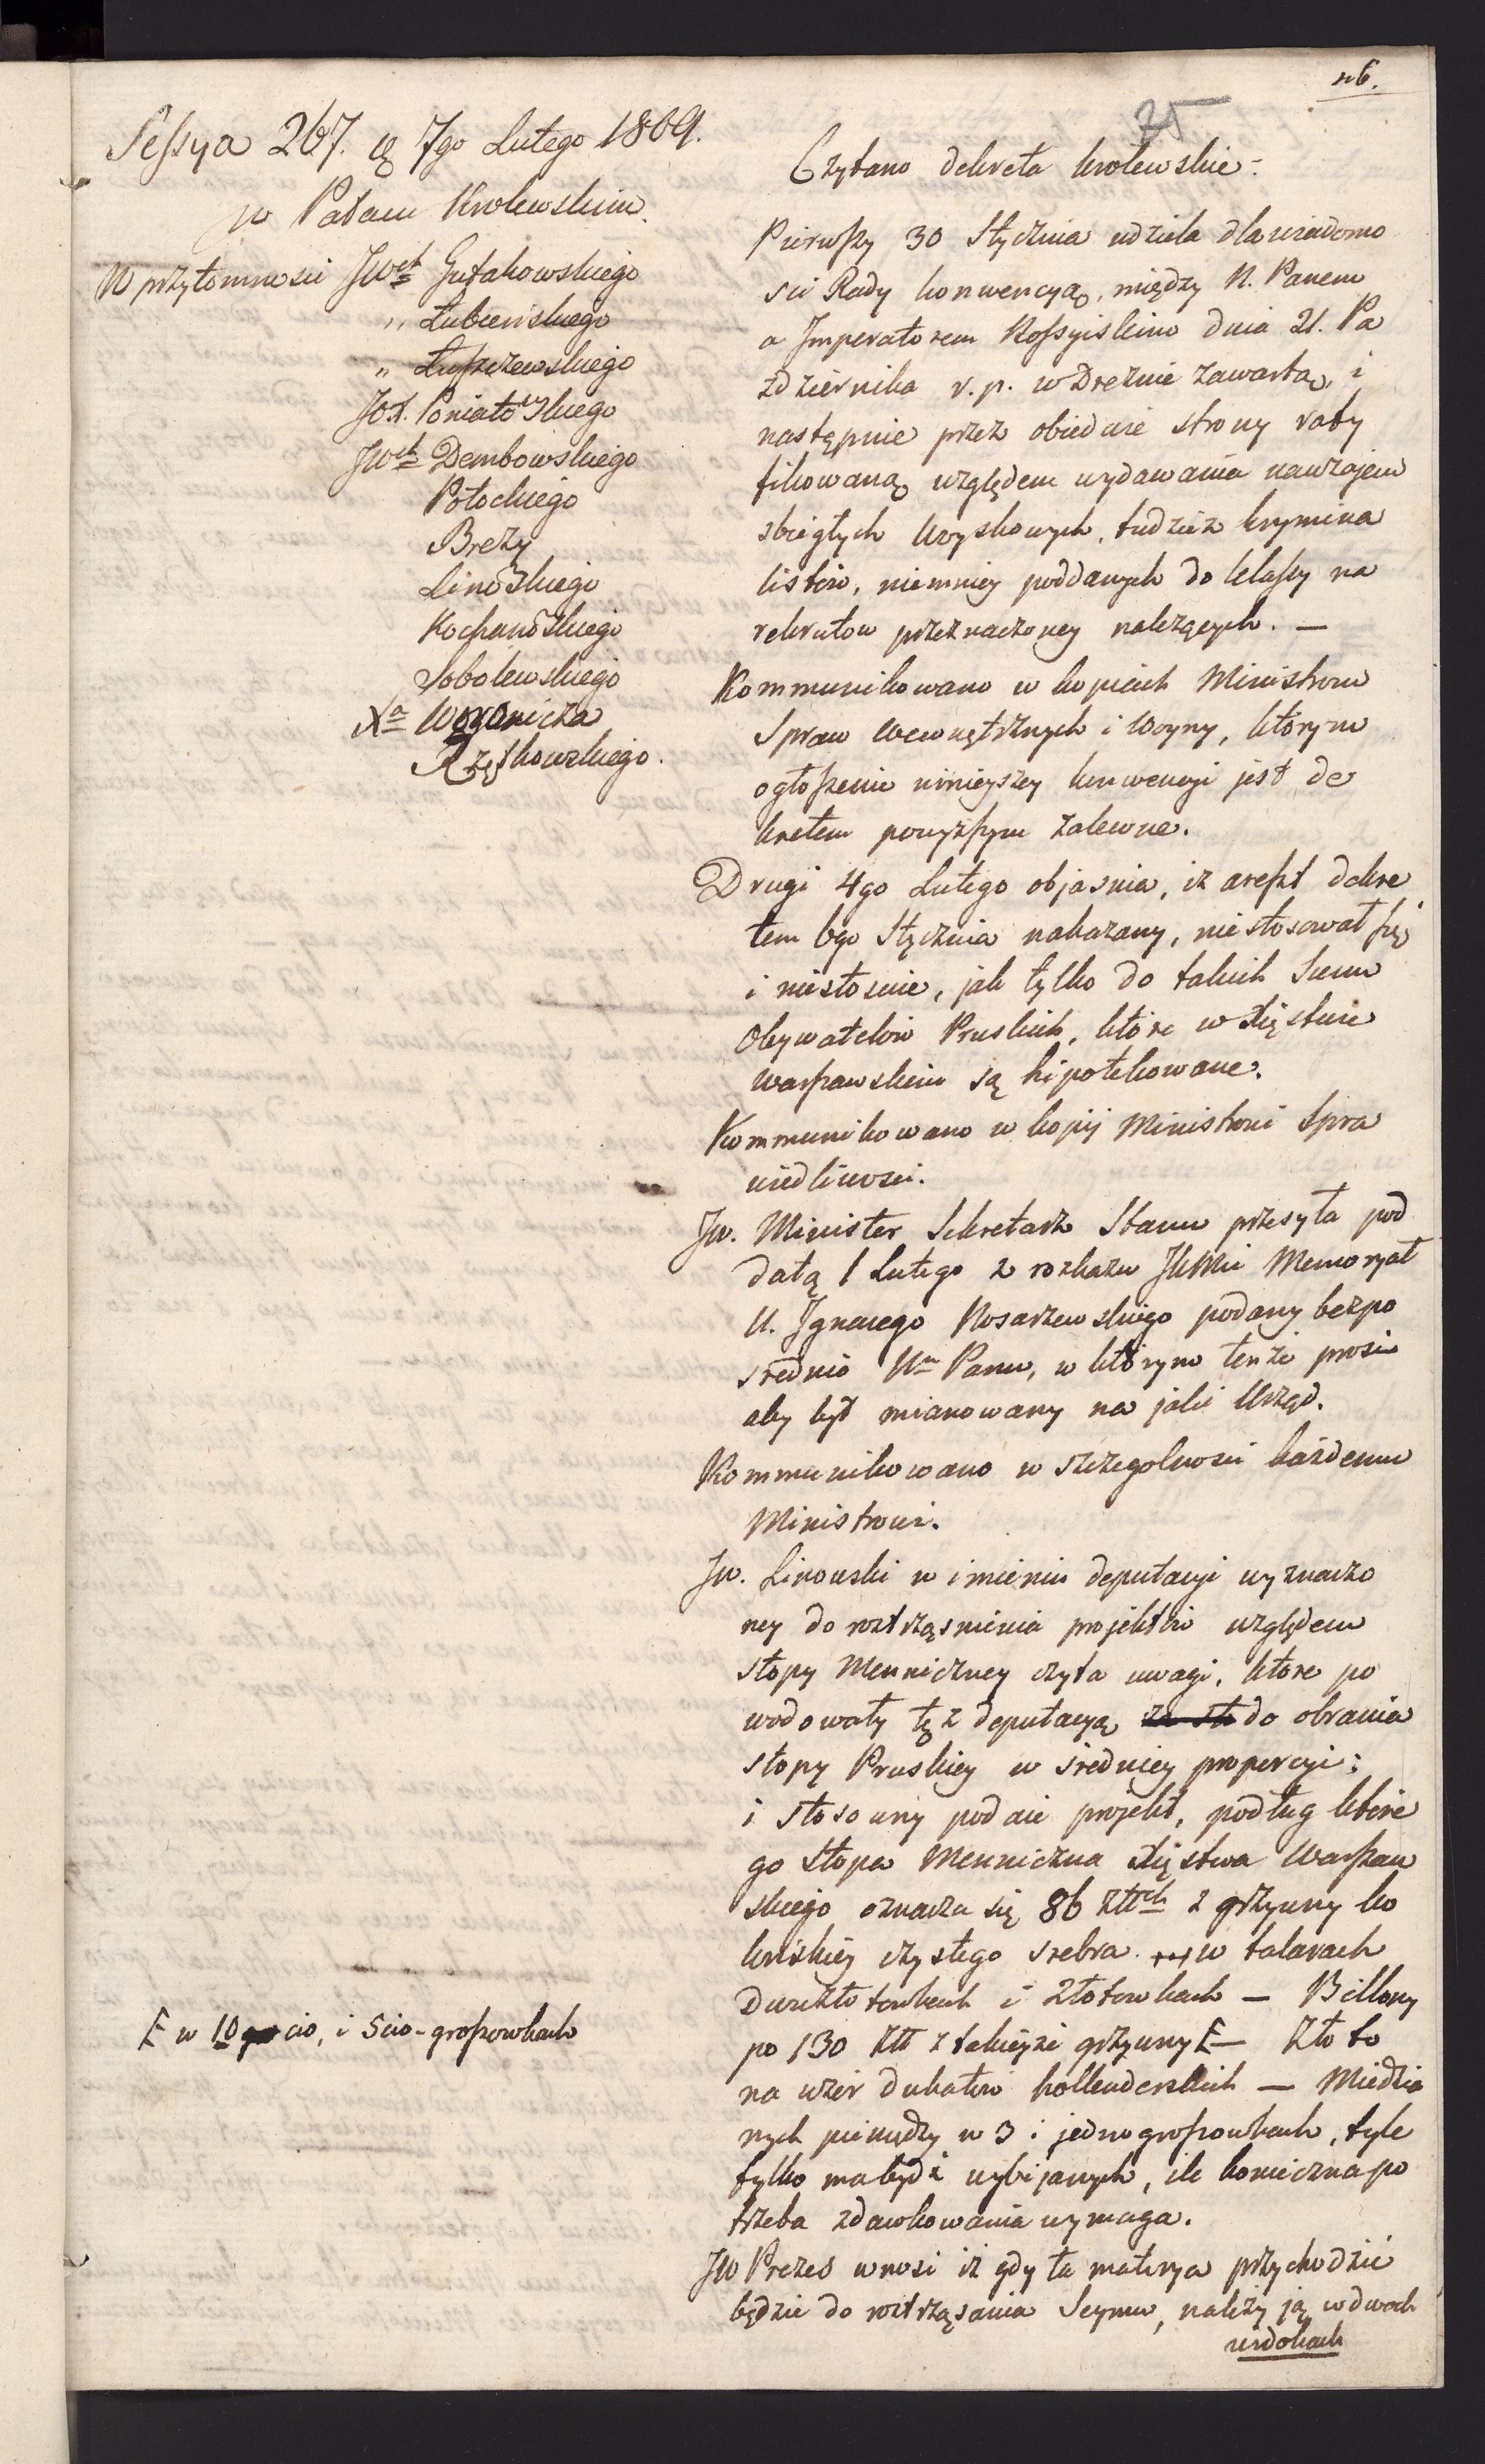 n6.
25
Sessya 267. d. 7go Lutego 1809.
w Pałacu Krolewskim.
W przytomnosci JWch Gutakowskiego
" Łubienskiego
" Łuszczewskiego
JOX. Poniatowskiego
JWch Dembowskiego
Potockiego
Brezy
Linowskiego
Kochanowskiego
Sobolewskiego
Xa Woronicza
Rzętkowskiego.
Czytano dekreta krolewskie.
Pierwszy 30 Stycznia udziela dla wiadomo
sci Rady konwencyą, między N. Panem
a Imperatorem Rossyiskim dnia 21. Pa
zdziernika r. p. w Dreznie zawartą, i
następnie przez obiedwie strony raty
fikowaną względem wydawania nawzajem
zbiegłych woyskowych, tudzież krymina
listów, niemniey poddanych do klassy na
rekrutow przeznaczoney należących. —
Kommunikowano w kopiach Ministrom
Spraw Wewnętrznych i Woyny, którym
ogłoszenie ninieyszey konwencyi jest de
kretem powyższym zalecone.
Drugi 4go Lutego objasnia, iż areszt dekre
tem 6go Stycznia nakazany, niestosował się
i niestosuie, jak tylko do takich Summ
Obywatelów Pruskich, które w Xięstwie
Warszawskim są hipotekowane.
Kommunikowano w kopij Ministrowi Spra
wiedliwosci.
JW. Minister Sekretarz Stanu przesyła pod
datą 1 Lutego z rozkazu JKMci Memoryał
U. Ignacego Kosarzewskiego podany bezpo
srednio Nmu Panu, w którym tenże prosi
aby był mianowany na jaki Urząd.
Kommunikowano w szczegolnosci każdemu
Ministrowi.
JW. Linowski w imieniu deputacyi wyznaczo
ney do roztrząsnienia projektów względem
stopy Menniczney czyta uwagi, które po
wodowały tęż deputacyą do obrania
stopy Pruskiey w średniey proporcyi;
i stosowny podaie projekt, podług które
go Stopa Mennicza Xięstwa Warszaw
skiego oznacza się 86 Złłch z grzywny ko
lońskiey czystego srebra w talarach
Dwuzłotowkach i Złotowkach — Billony
po 130 Złł z takieyże grzywny Ł — Złoto
na wzór dukatów hollenderskich — Miedzia
nych pieniędzy w 3 i jednogroszowkach, tyle
tylko ma bydź wybijanych, ile konieczna po
trzeba zdawkowania wymaga.
Ł w 10cio, i 5cio-groszowkach
JW Prezes wnosi iż gdy ta materya przychodzić
będzie do roztrząsania Seymu, należy ją w dwoch
widokach